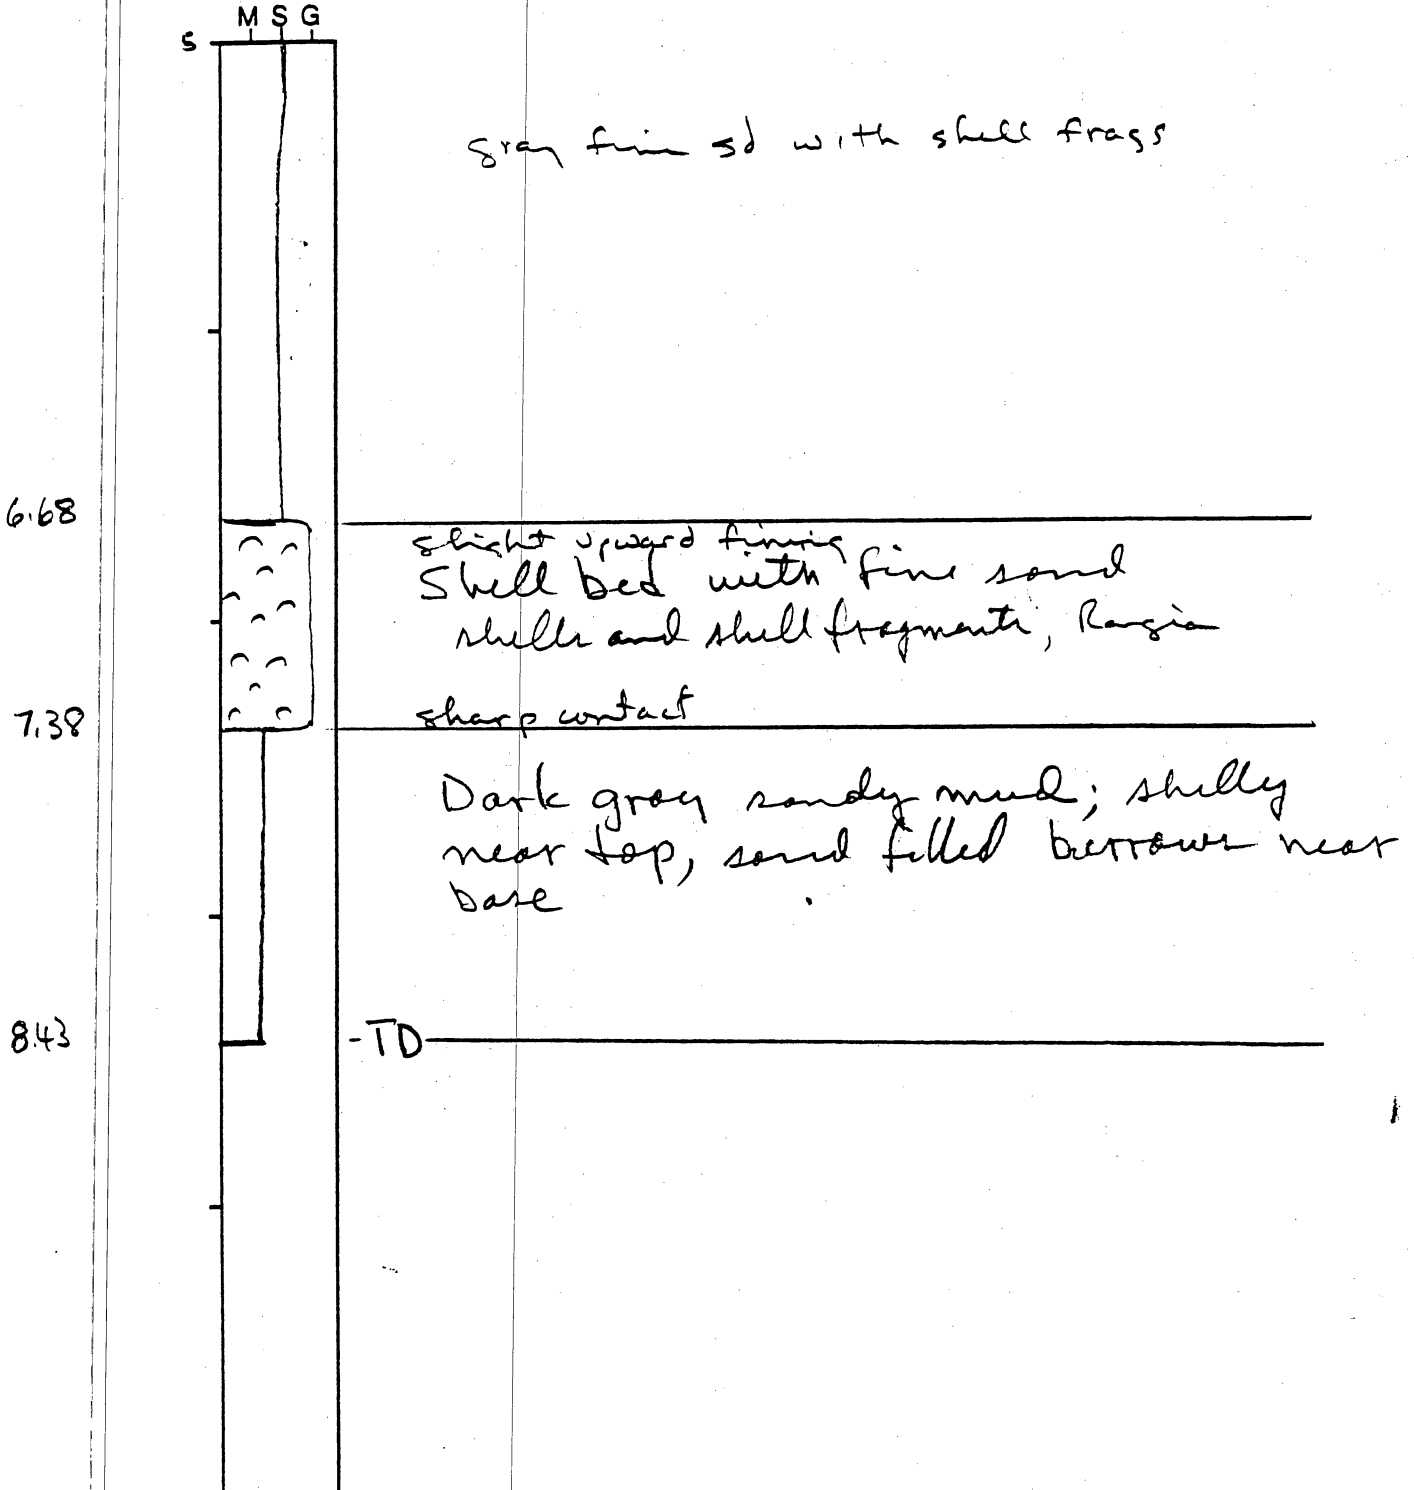 M S G
5
gray fine sd with shell frags
6.68
slight upward fining
Shell bed with fine sand
shells and shell fragments, Rangia
7.38
sharp contact
Dark gray sandy mud; shelly
near top, sand filled burrows near
base
8.43
-TD-